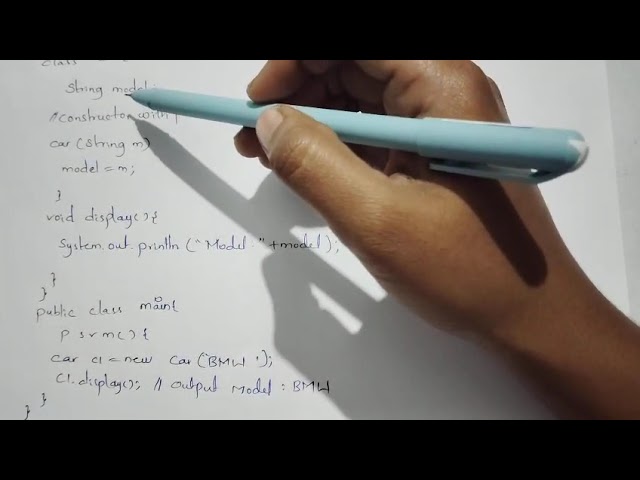 class
String model;
//constructor with
car(string m)
model = m;
}
void display(){
System.out.println("Model:"+model);
}
}
public class main{
p s v m( ) {
car c1 = new car("BMW");
c1.display(); // output Model : BMW
}
}